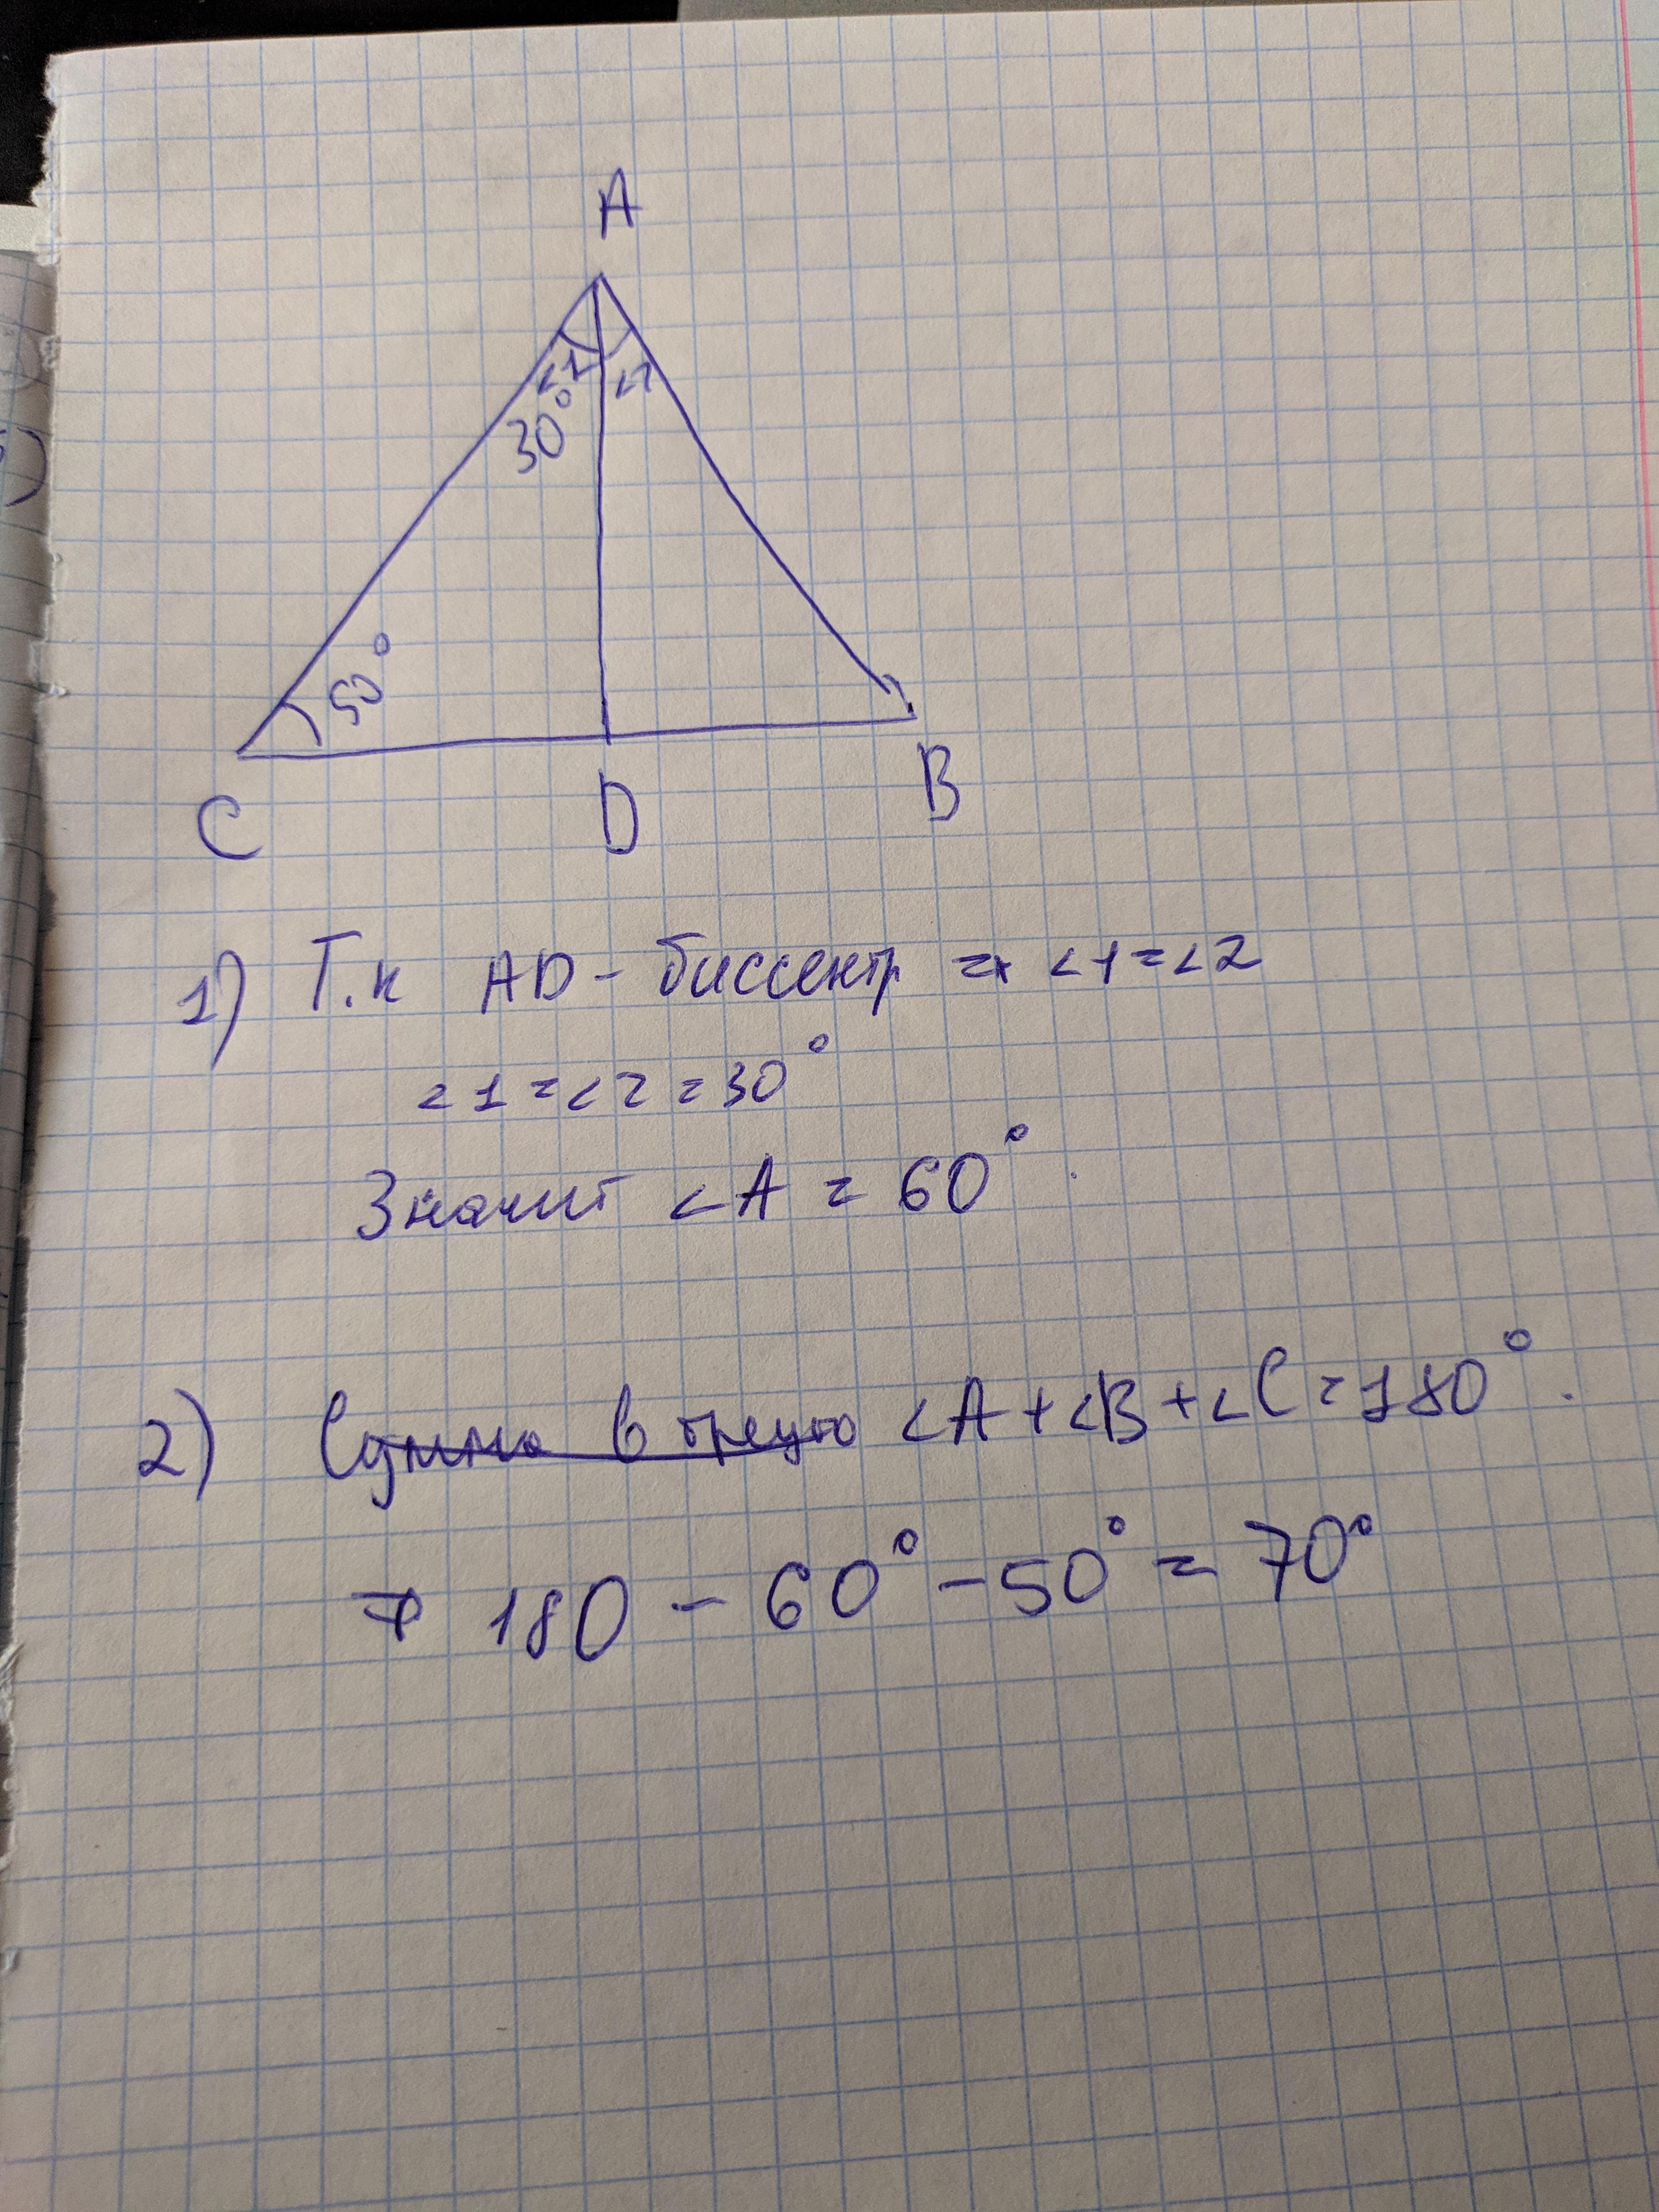 A
∠1 ∠2
30°
50°
C D B
1) Т.к AD - биссектр => ∠1 = ∠2
∠1 = ∠2 = 30°
Значит ∠A = 60°.
2) Сумма в треуго ∠A + ∠B + ∠C = 180°.
=> 180 - 60° - 50° = 70°